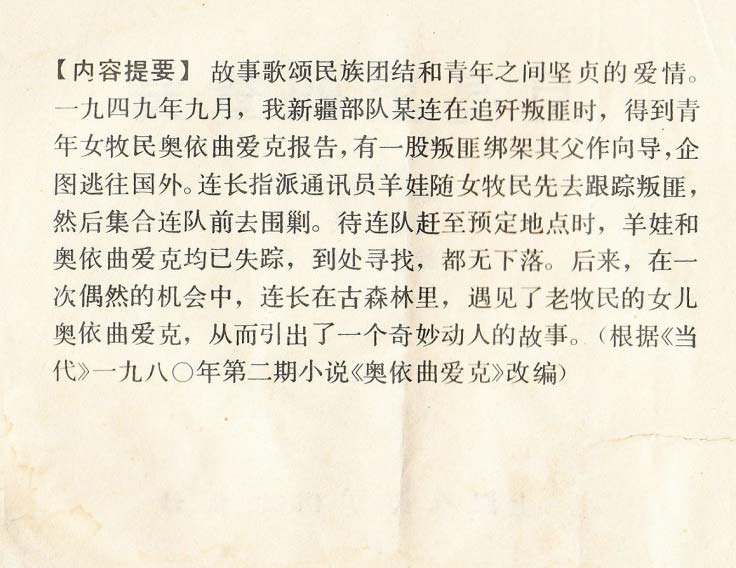 【内容提要】 故事歌颂民族团结和青年之间坚贞的爱情。
一九四九年九月，我新疆部队某连在追歼叛匪时，得到青
年女牧民奥依曲爱克报告，有一股叛匪绑架其父作向导，企
图逃往国外。连长指派通讯员羊娃随女牧民先去跟踪叛匪，
然后集合连队前去围剿。待连队赶至预定地点时，羊娃和
奥依曲爱克均已失踪，到处寻找，都无下落。后来，在一
次偶然的机会中，连长在古森林里，遇见了老牧民的女儿
奥依曲爱克，从而引出了一个奇妙动人的故事。（根据《当
代》一九八〇年第二期小说《奥依曲爱克》改编）